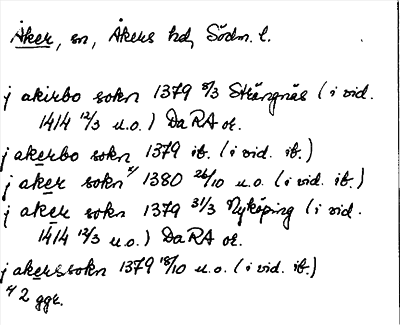 Åker, sn, Åkers hd, Södm. l.
j akirbo sokn 1379 8/3 Strängnäs (i vid.
1414 12/3 u.o.) Da RA or.
j akerbo sokn 1379 ib. (i vid. ib.)
j aker sokn x/ 1380 26/10 u.o. (i vid. ib.)
j aker sokn 1379 31/3 Nyköping (i vid.
1414 12/3 u.o.) Da RA or.
j akerssokn 1379 18/10 u.o. (i vid. ib.)
x/ 2 ggr.